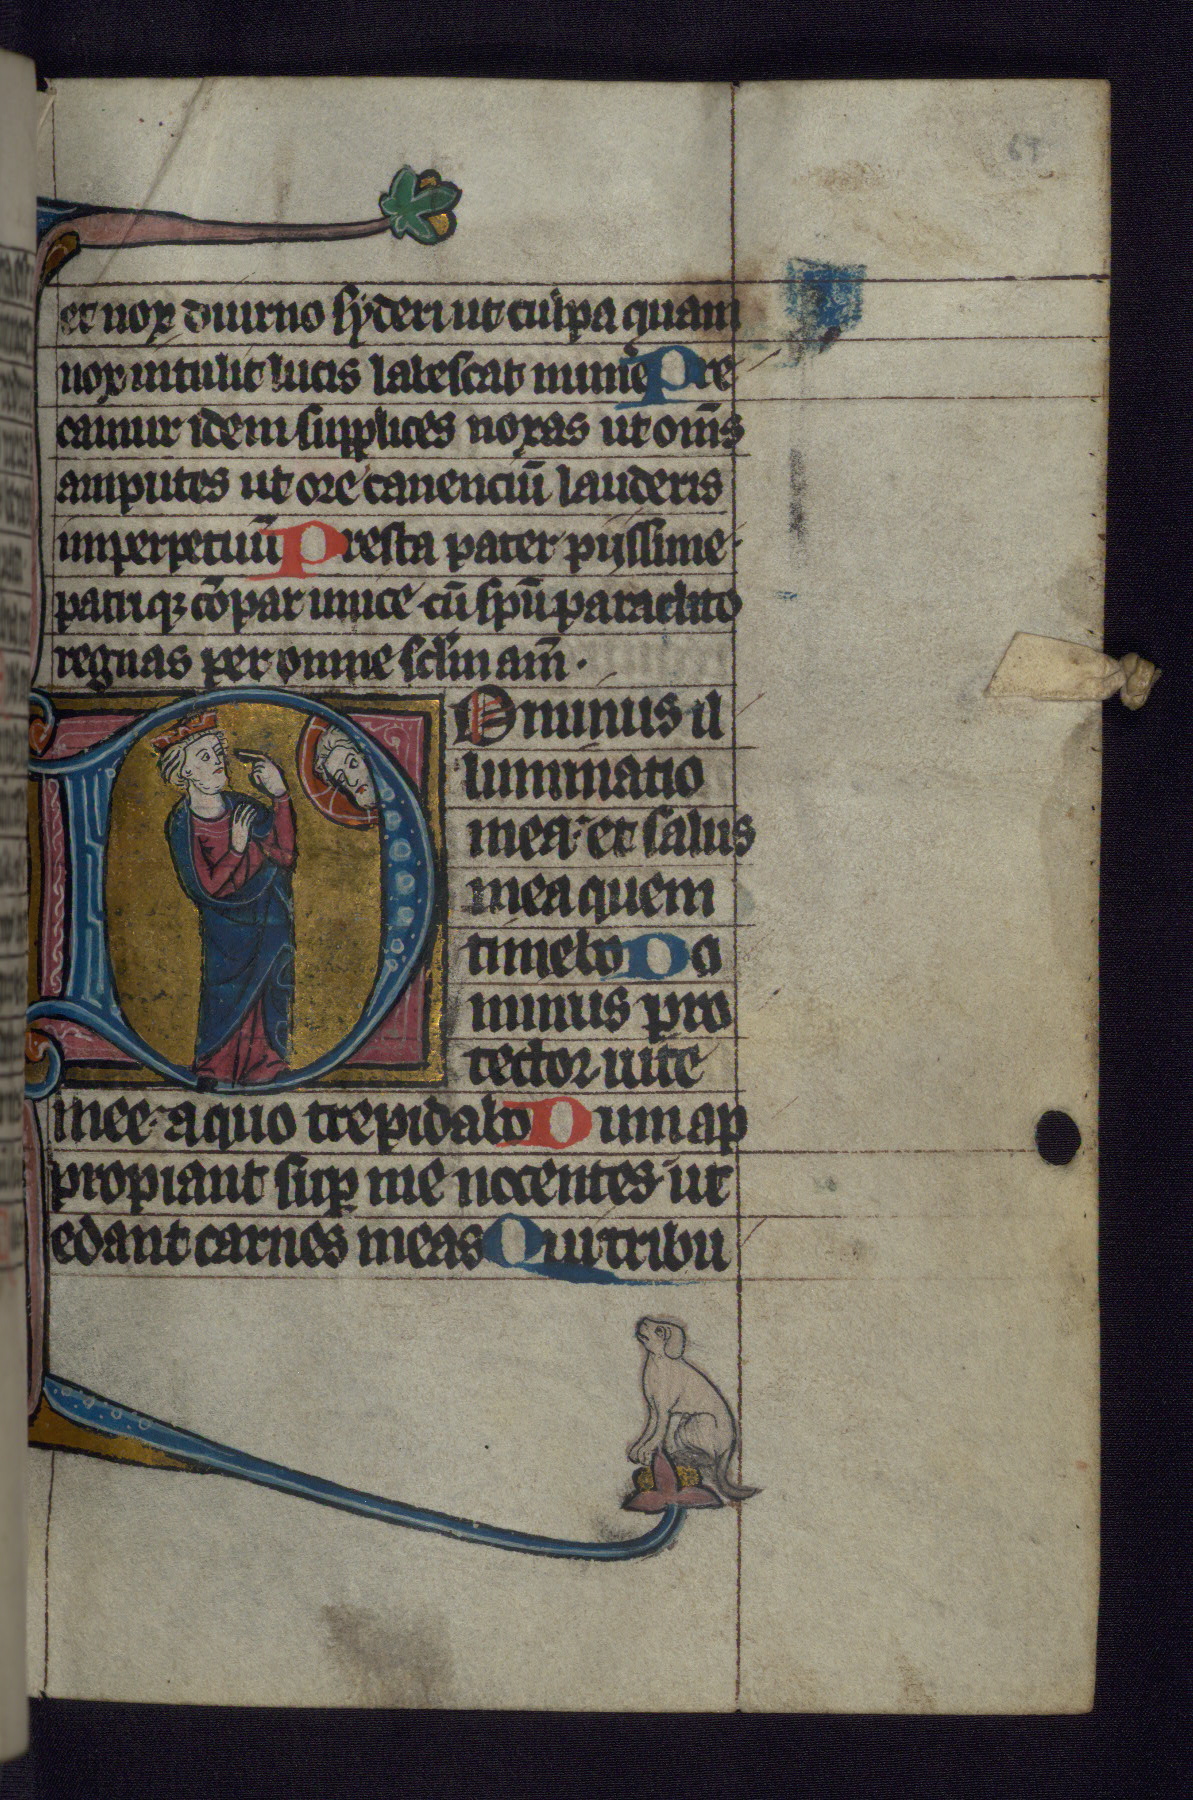 et nox diurno syderi ut culpa quam
nox intulit lucis labescat munē Pre
camur idem supplices noxas ut om̄s
amputes ut ore canenciū lauderis
inperpetuū Presta pater pijssime·
patriqȝ cōpar unice cū spū paraclito
regnas per omne sclm am̄·
Dominus il
luminatio
mea· et salus
mea quem
timebo Do
minus pro
tector uite
mee· a quo trepidabo Dum ap
propiant suꝑ me nocentes ut
edant carnes meas Qui tribu